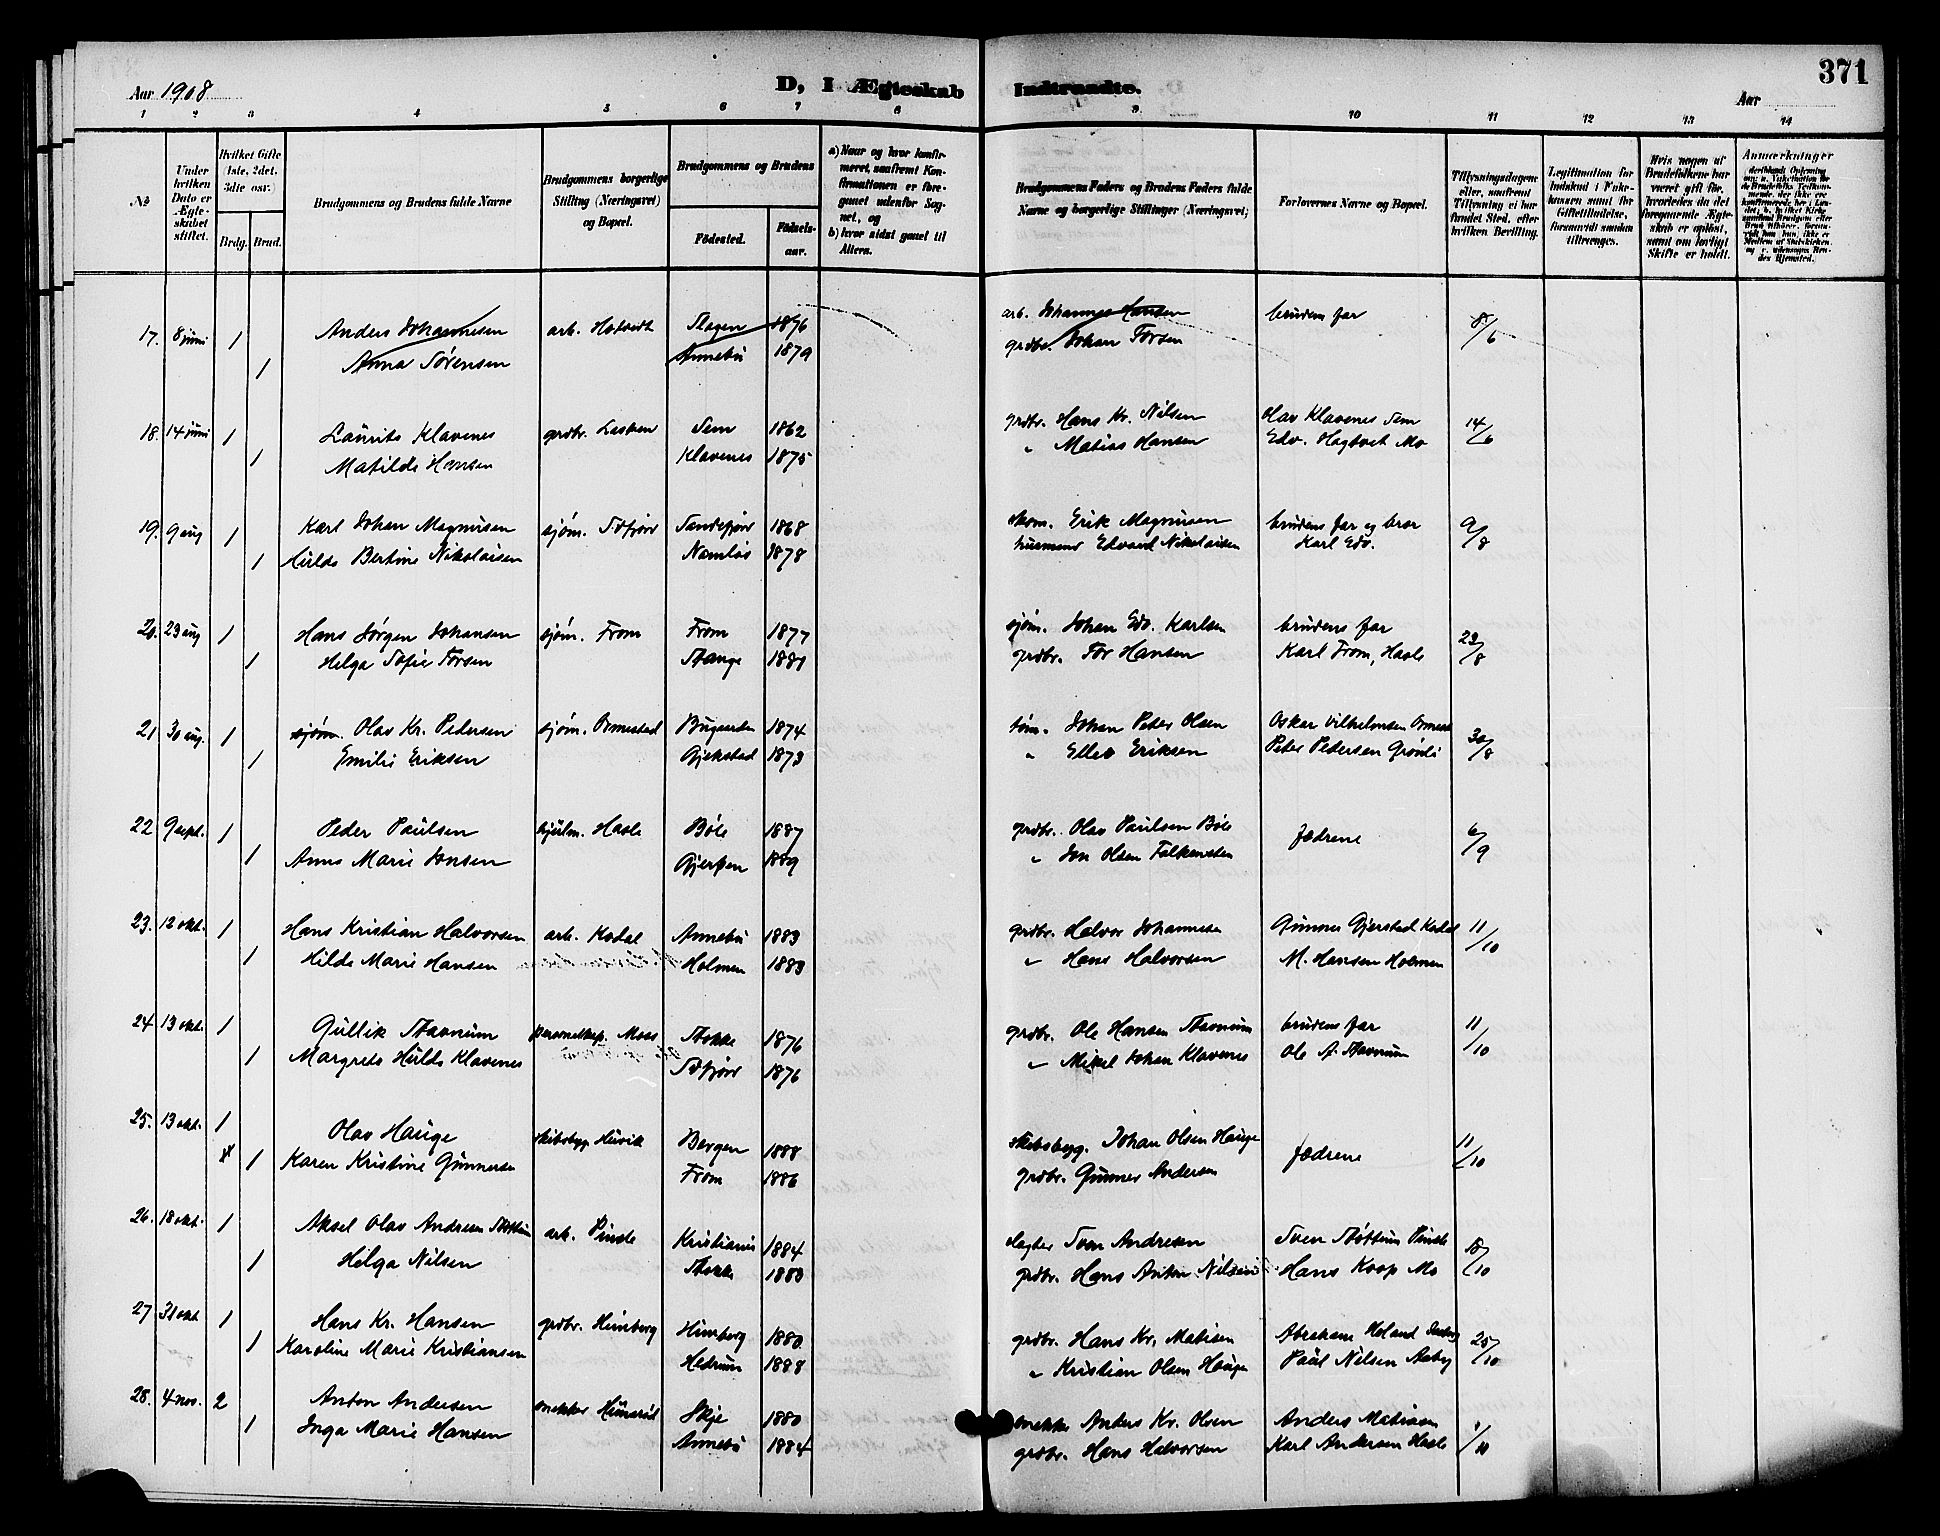 371
Aar 1908
D, I Ægteskab Indtraadte.
Aar
1 2 3 4 5 6 7 8 9 10 11 12 13 14
№
Under hvilken Dato er Ægteskabet stiftet.
Hvilket Gifte (1ste, 2det, 3die osv.)
Brdg. Brud.
Brudgommens og Brudens fulde Navne
Brudgommens borgerlige Stilling (Næringsvei) og Bopæl.
Brudgommens og Brudens
Fødested. Fødselsaar.
a) Naar og hvor konfirmeret, saafremt Konfirmationen er foregaaet udenfor Sognet, og
b) hvor sidst gaaet til Alters.
Brudgommens Faders og Brudens Faders fulde Navne og borgerlige Stillinger (Næringsvei)
Forlovernes Navne og Bopæl.
Tillysningsdagene eller, saafremt Tillysning ei har fundet Sted, efter hvilken Bevilling.
Legitimation for Indskud i Enkekassen samt for Giftetilladelse, forsaavidt saadan tiltrænges.
Hvis nogen af Brudefolkene har været gift før, hvorledes da det foregaaende Ægteskab er opløst, samt om lovligt Skifte er holdt.
Anmærkninger
17. 8 juni 1 Anders Johannesen arb. Hotvedt Slagen 1876 arb. Johannes Hansen brudens far 8/6
1 Anna Sørensen Annebu 1879 grdbr. Johan Torsen
18. 14 juni 1 Laurits Klavenes grdbr. Lasken Sem 1862 grdbr. Hans Kr. Nilsen Olav Klavenes Sem 14/6
1 Matilde Hansen Klavenes 1875 " Matias Hansen Edv. Hagtvet Mo
19. 9 aug 1 Karl Johan Magnusen sjøm. Sdfjord Sandefjord 1868 skom. Erik Magnusen brudens far og bror 9/8
1 Hilda Bertine Nikolaisen Namløs 1878 husmand Edvard Nikolaisen Karl Edv.
20. 23 aug 1 Hans Jørgen Johansen sjøm. From From 1877 sjøm. Johan Edv. Karlsen brudens far 23/8
1 Helga Sofie Torsen Stange 1881 grdbr. Tor Hansen Karl From, Hasle
21 30 aug. 1 sjøm. Olav Kr. Pedersen sjøm. Ormestad Bugaarden 1874 tøm. Johan Peter Olsen Oskar Vilhelmsen Ormest 30/8
1 Emilie Eriksen Gjekstad 1873 " Ellef Eriksen Peder Pedersen Grønli
22 9 sept. 1 Peder Paulsen hjulm. Hasle Bøle 1887 grdbr. Olav Paulsen Bøle fædrene 6/9
1 Anna Marie Jonsen Gjerpen 1889 " Jon Olsen Falkensten
23. 12 okt. 1 Hans Kristian Halvorsen arb. Kodal Annebu 1883 grdbr. Halvor Johannesen Gunnar Gjerstad Kodal 11/10
1 Hilda Marie Hansen Holmen 1883 " Hans Halvorsen M. Hansen Holmen
24 13 okt. 1 Gullik Stavnum Moss Stokke 1876 grdbr. Ole Hansen Stavnum brudens far 11/10
1 Margrete Hulda Klavenes Sdfjord 1876 " Mikel Johan Klavenes Ole A. Stavnum
25. 13 okt. 1 Olav Hauge skibsbyg. Husvik Bergen 1888 skibsbygg. Johan Olsen Hauge fædrene 11/10
1 Karen Kristine Gunnersen From 1886 grdbr. Gunner Andersen
26. 18 okt. 1 Aksel Olav Andresen Støttum arb. Pindsle Kristiania 1884 slagter Sven Andresen Sven Støttum Pindsle 18/10
1 Helga Nilsen Stokke 1883 grdbr. Hans Anton Nilsen Hans Koop Mo
27 31 okt 1 Hans Kr. Hansen grdbr. Himberg Himberg 1880 grdbr. Hans Kr. Matisen Abraham Holand 25/10
1 Karoline Marie Kristiansen Hedrum 1888 " Kristian Olsen Hauge Paul Nilsen Aaby
28. 4 nov. 2 Anton Andersen snekker Skje 1880 snekker Anders Kr. Olsen Anders Matisen 1/11
1 Inga Marie Hansen Annebu 1884 grdbr. Hans Halvorsen Karl Andersen Hasle